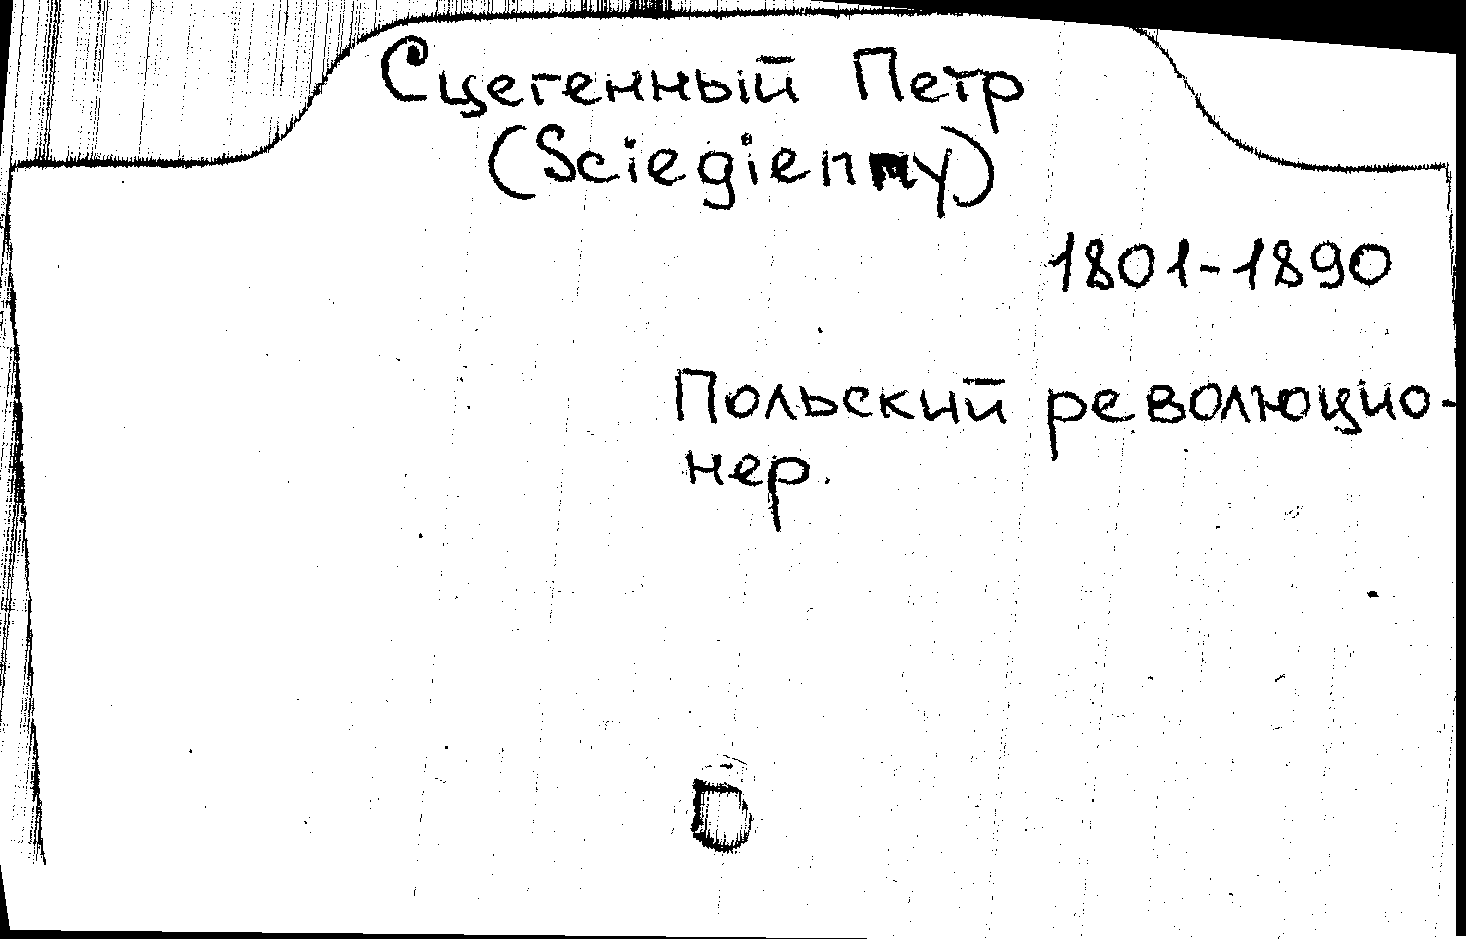 Сцегенный Петр
(Sciegienny)
1801-1890
Польский революцио-
нер.